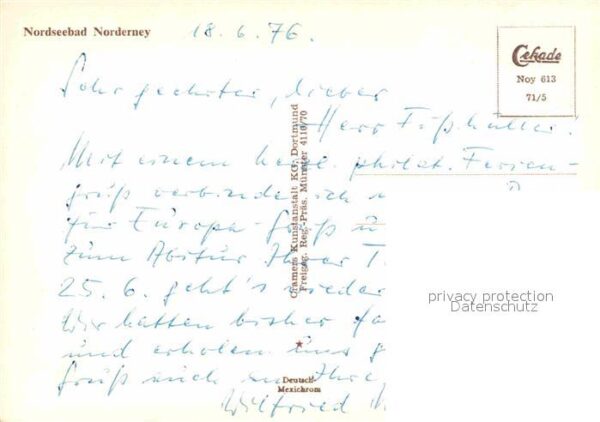 Nordseebad Norderney
18.6.76.
Cekade
Noy 613
71/5
Sehr geehrter, lieber
Herr
Mit einem herzl. philat. Ferien-
gruß verbinde ich
für Europa-Gruß u
zum Abitur Ihrer T
25.6. geht's wieder
Wir hatten bisher
und erholen uns g
Gruß auch an Ihre
Wilfried
Cramers Kunstanstalt KG, Dortmund
Freigeg. Reg.-Präs. Münster 4110/70
Deutsch-
Mexichrom
privacy protection
Datenschutz